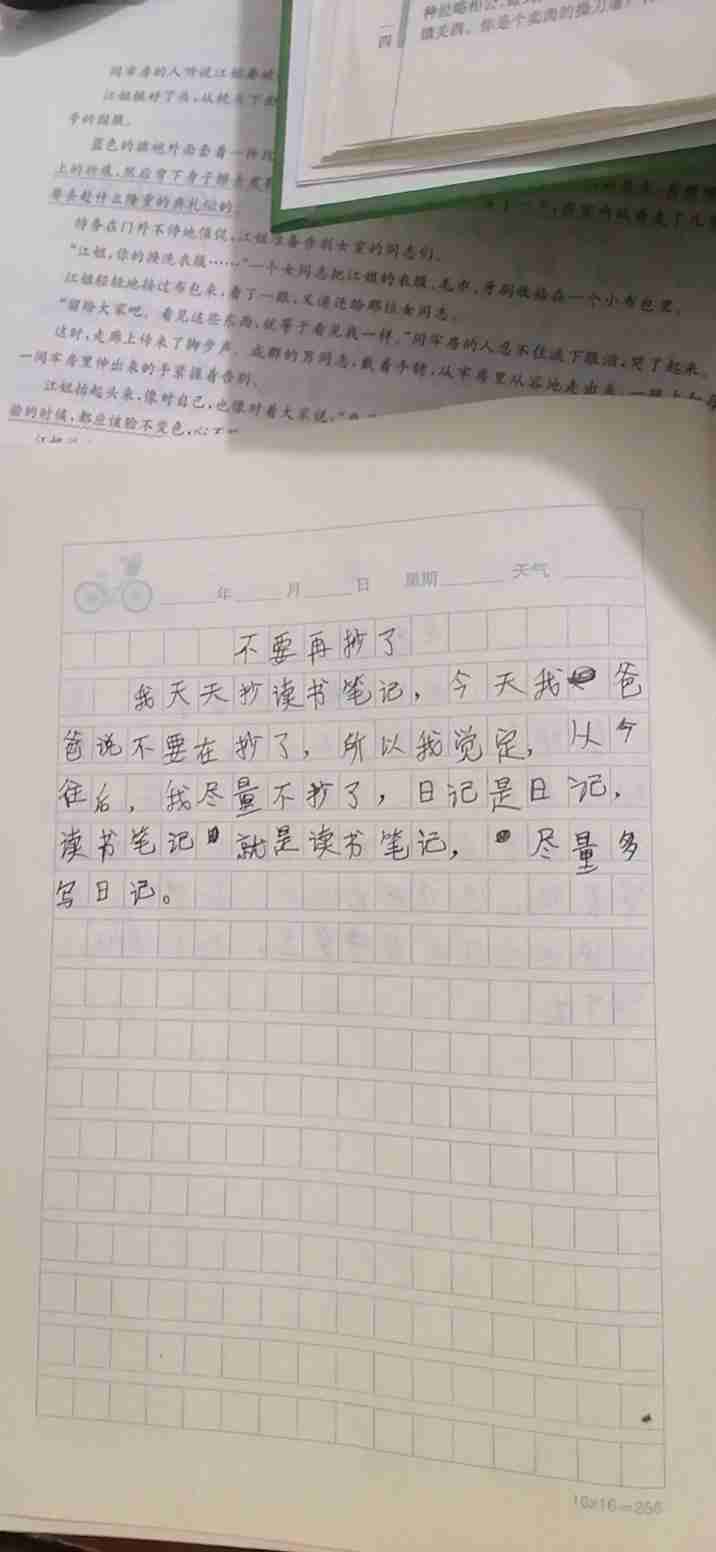 四
种经略相公，
镇关西。你是个卖肉的操刀屠户，
同牢房的人听说江姐要被
江姐梳好了头，从枕头下面
号的囚服。
蓝色的旗袍外面套着一件
上的折痕，然后弯下身子擦去皮鞋
要去赴什么隆重的典礼似的。
特务在门外不停地催促，江姐准备告别女室的同志们。
“江姐，你的换洗衣服……”一个女同志把江姐的衣服、毛巾、牙刷收拾在一个小布包里。
江姐轻轻地接过布包来，看了一眼，又递还给那位女同志。
“留给大家吧。看见这些东西，就等于看见我一样。”同牢房的人忍不住流下眼泪，哭了起来。
这时，走廊上传来了脚步声。成群的男同志，戴着手铐，从牢房里从容地走出来，一路上和
一间牢房里伸出来的手紧握着告别。
江姐抬起头来，像对自己，也像对着大家说，“
验的时候，都应该脸不变色，心不
年 月 日 星期 天气
不要再抄了
我天天抄读书笔记，今天我爸
爸说不要在抄了，所以我觉定，从今
往后，我尽量不抄了，日记是日记，
读书笔记就是读书笔记，尽量多
写日记。
16×16=256